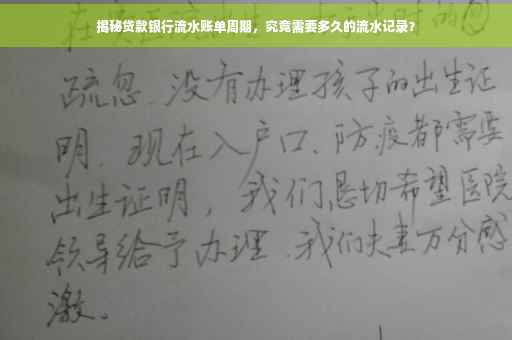 揭秘贷款银行流水账单周期，究竟需要多久的流水记录？
疏忽、没有办理孩子的出生证
明、现在入户口、防疫都需要
出生证明，我们恳切希望医院
领导给予办理、我们夫妻万分感
激。